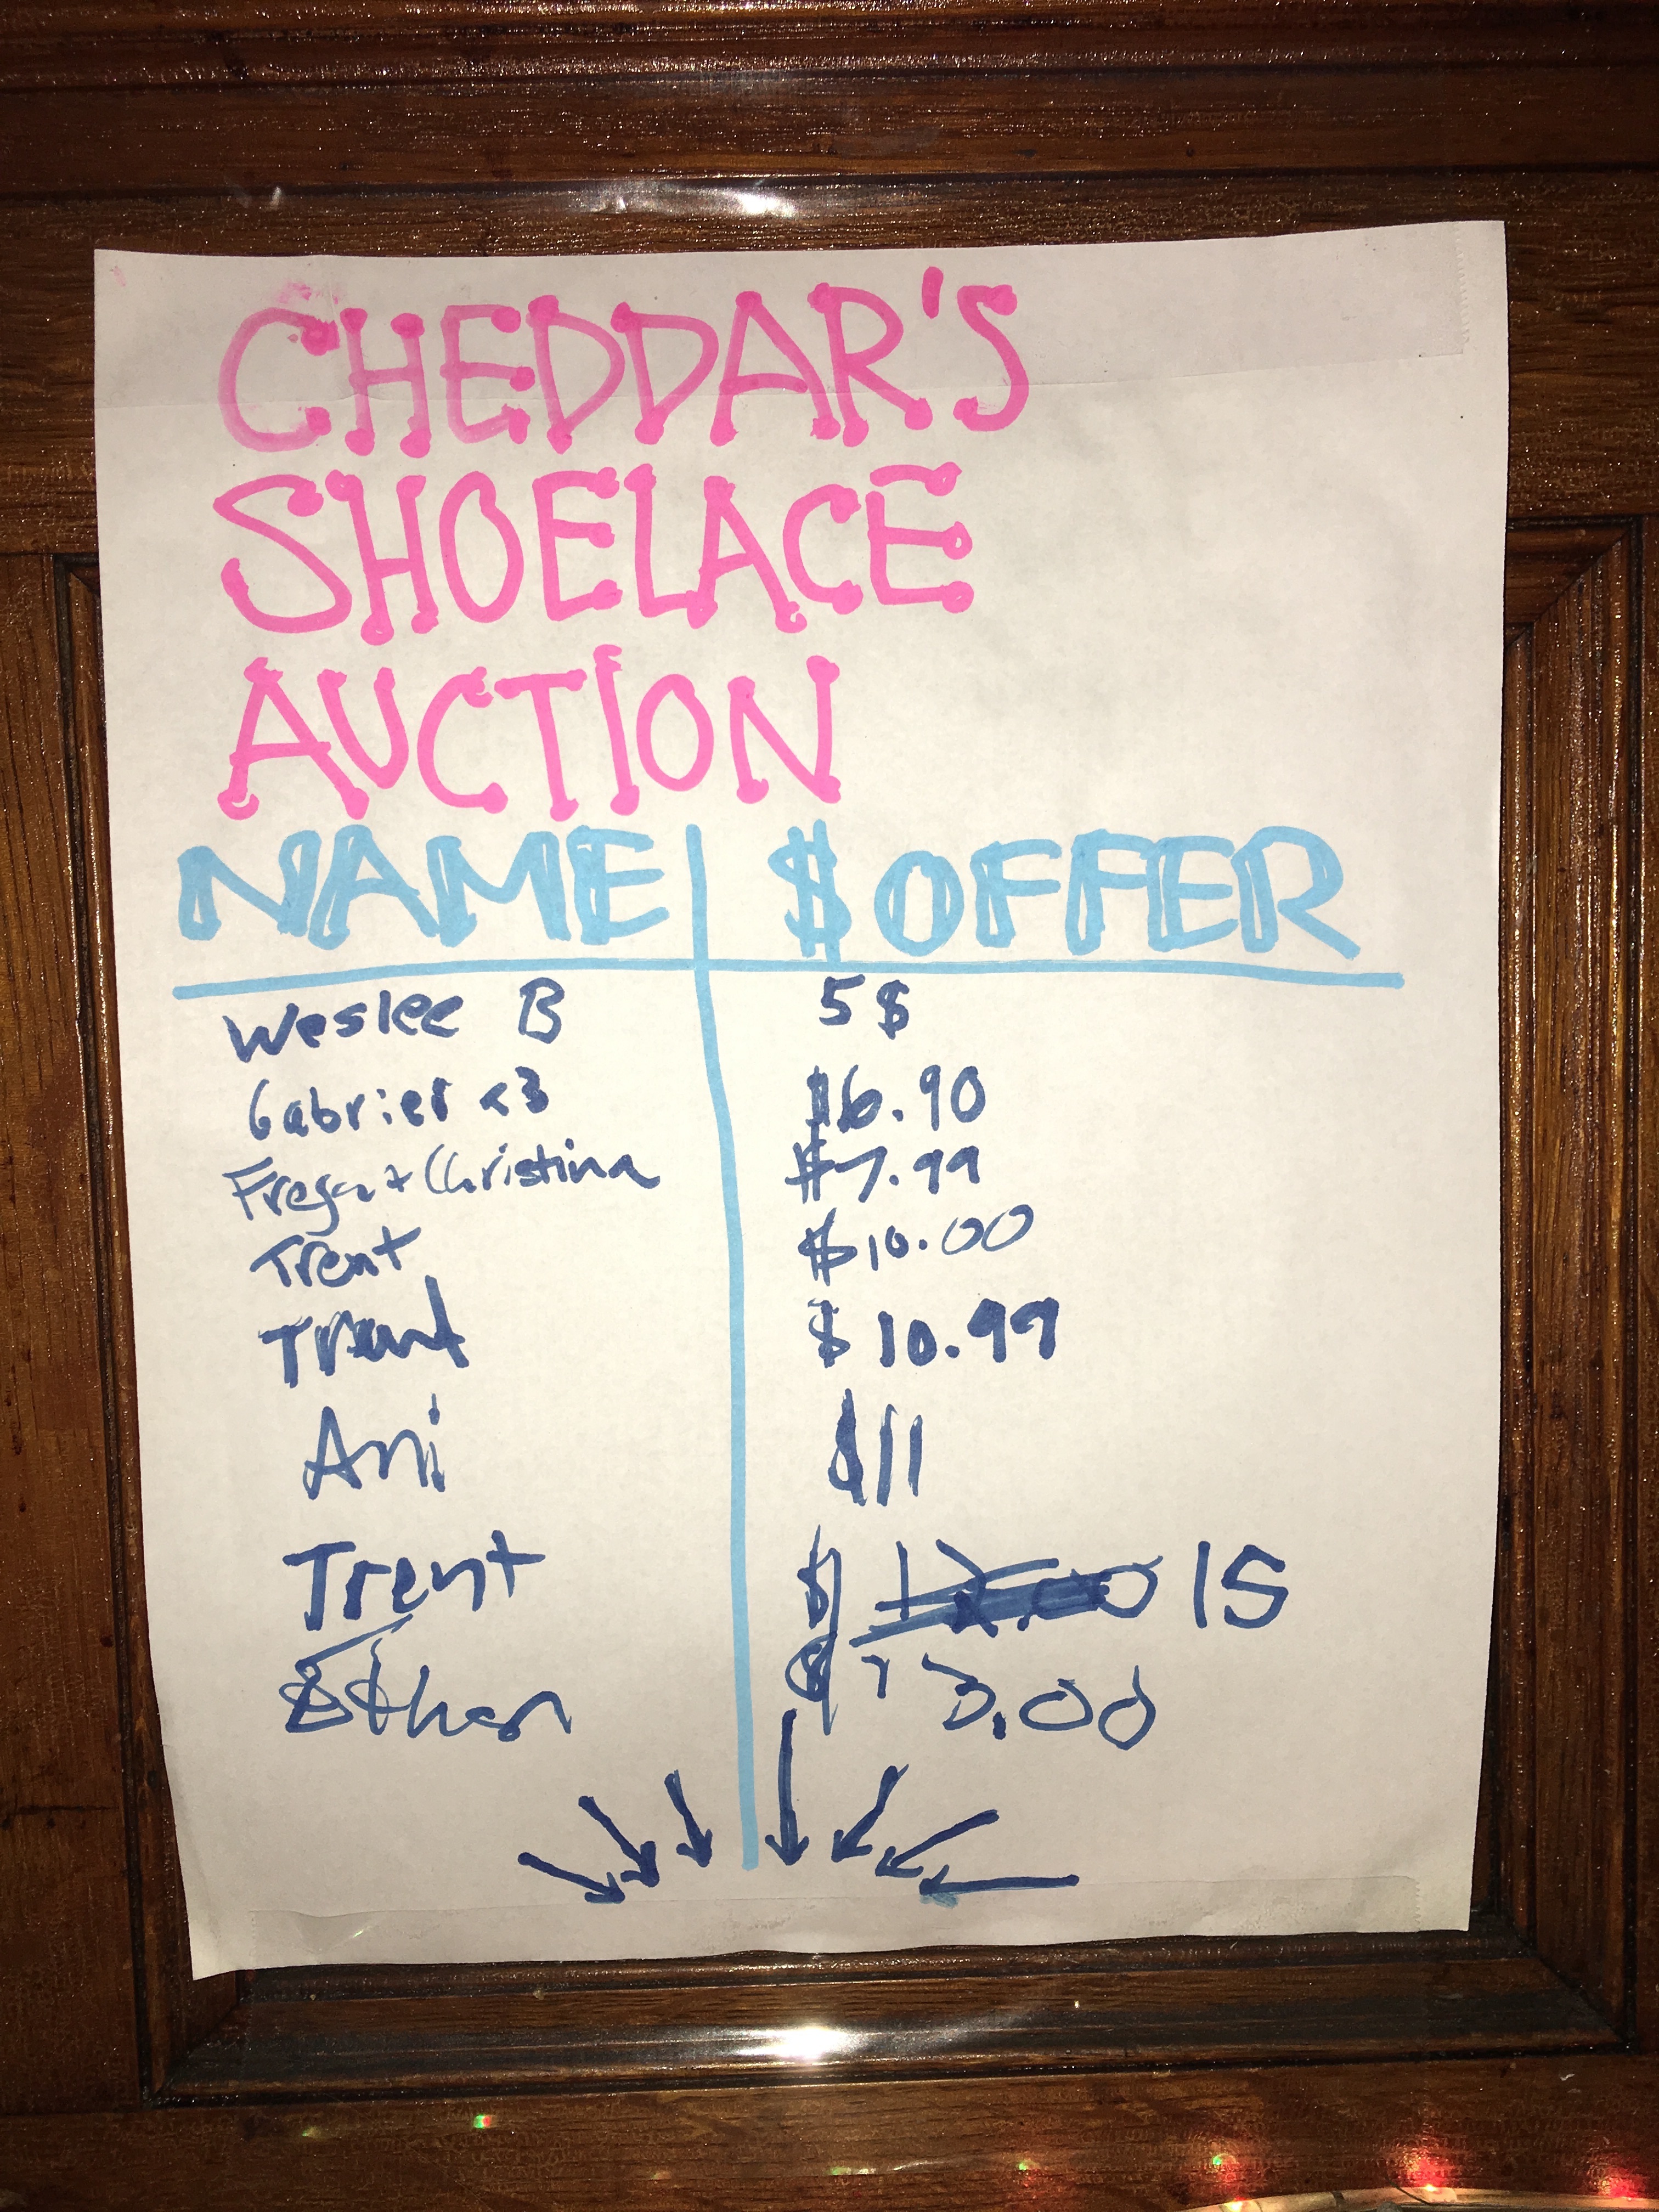 CHEDDAR'S
SHOELACE
AUCTION
NAME $ OFFER
Weslee B 5$
Gabriel <3 $6.90
+ Christina $7.99
Trent $10.00
Trent $10.99
Ani $11
Trent $ 12.00 15
Ethan $13.00